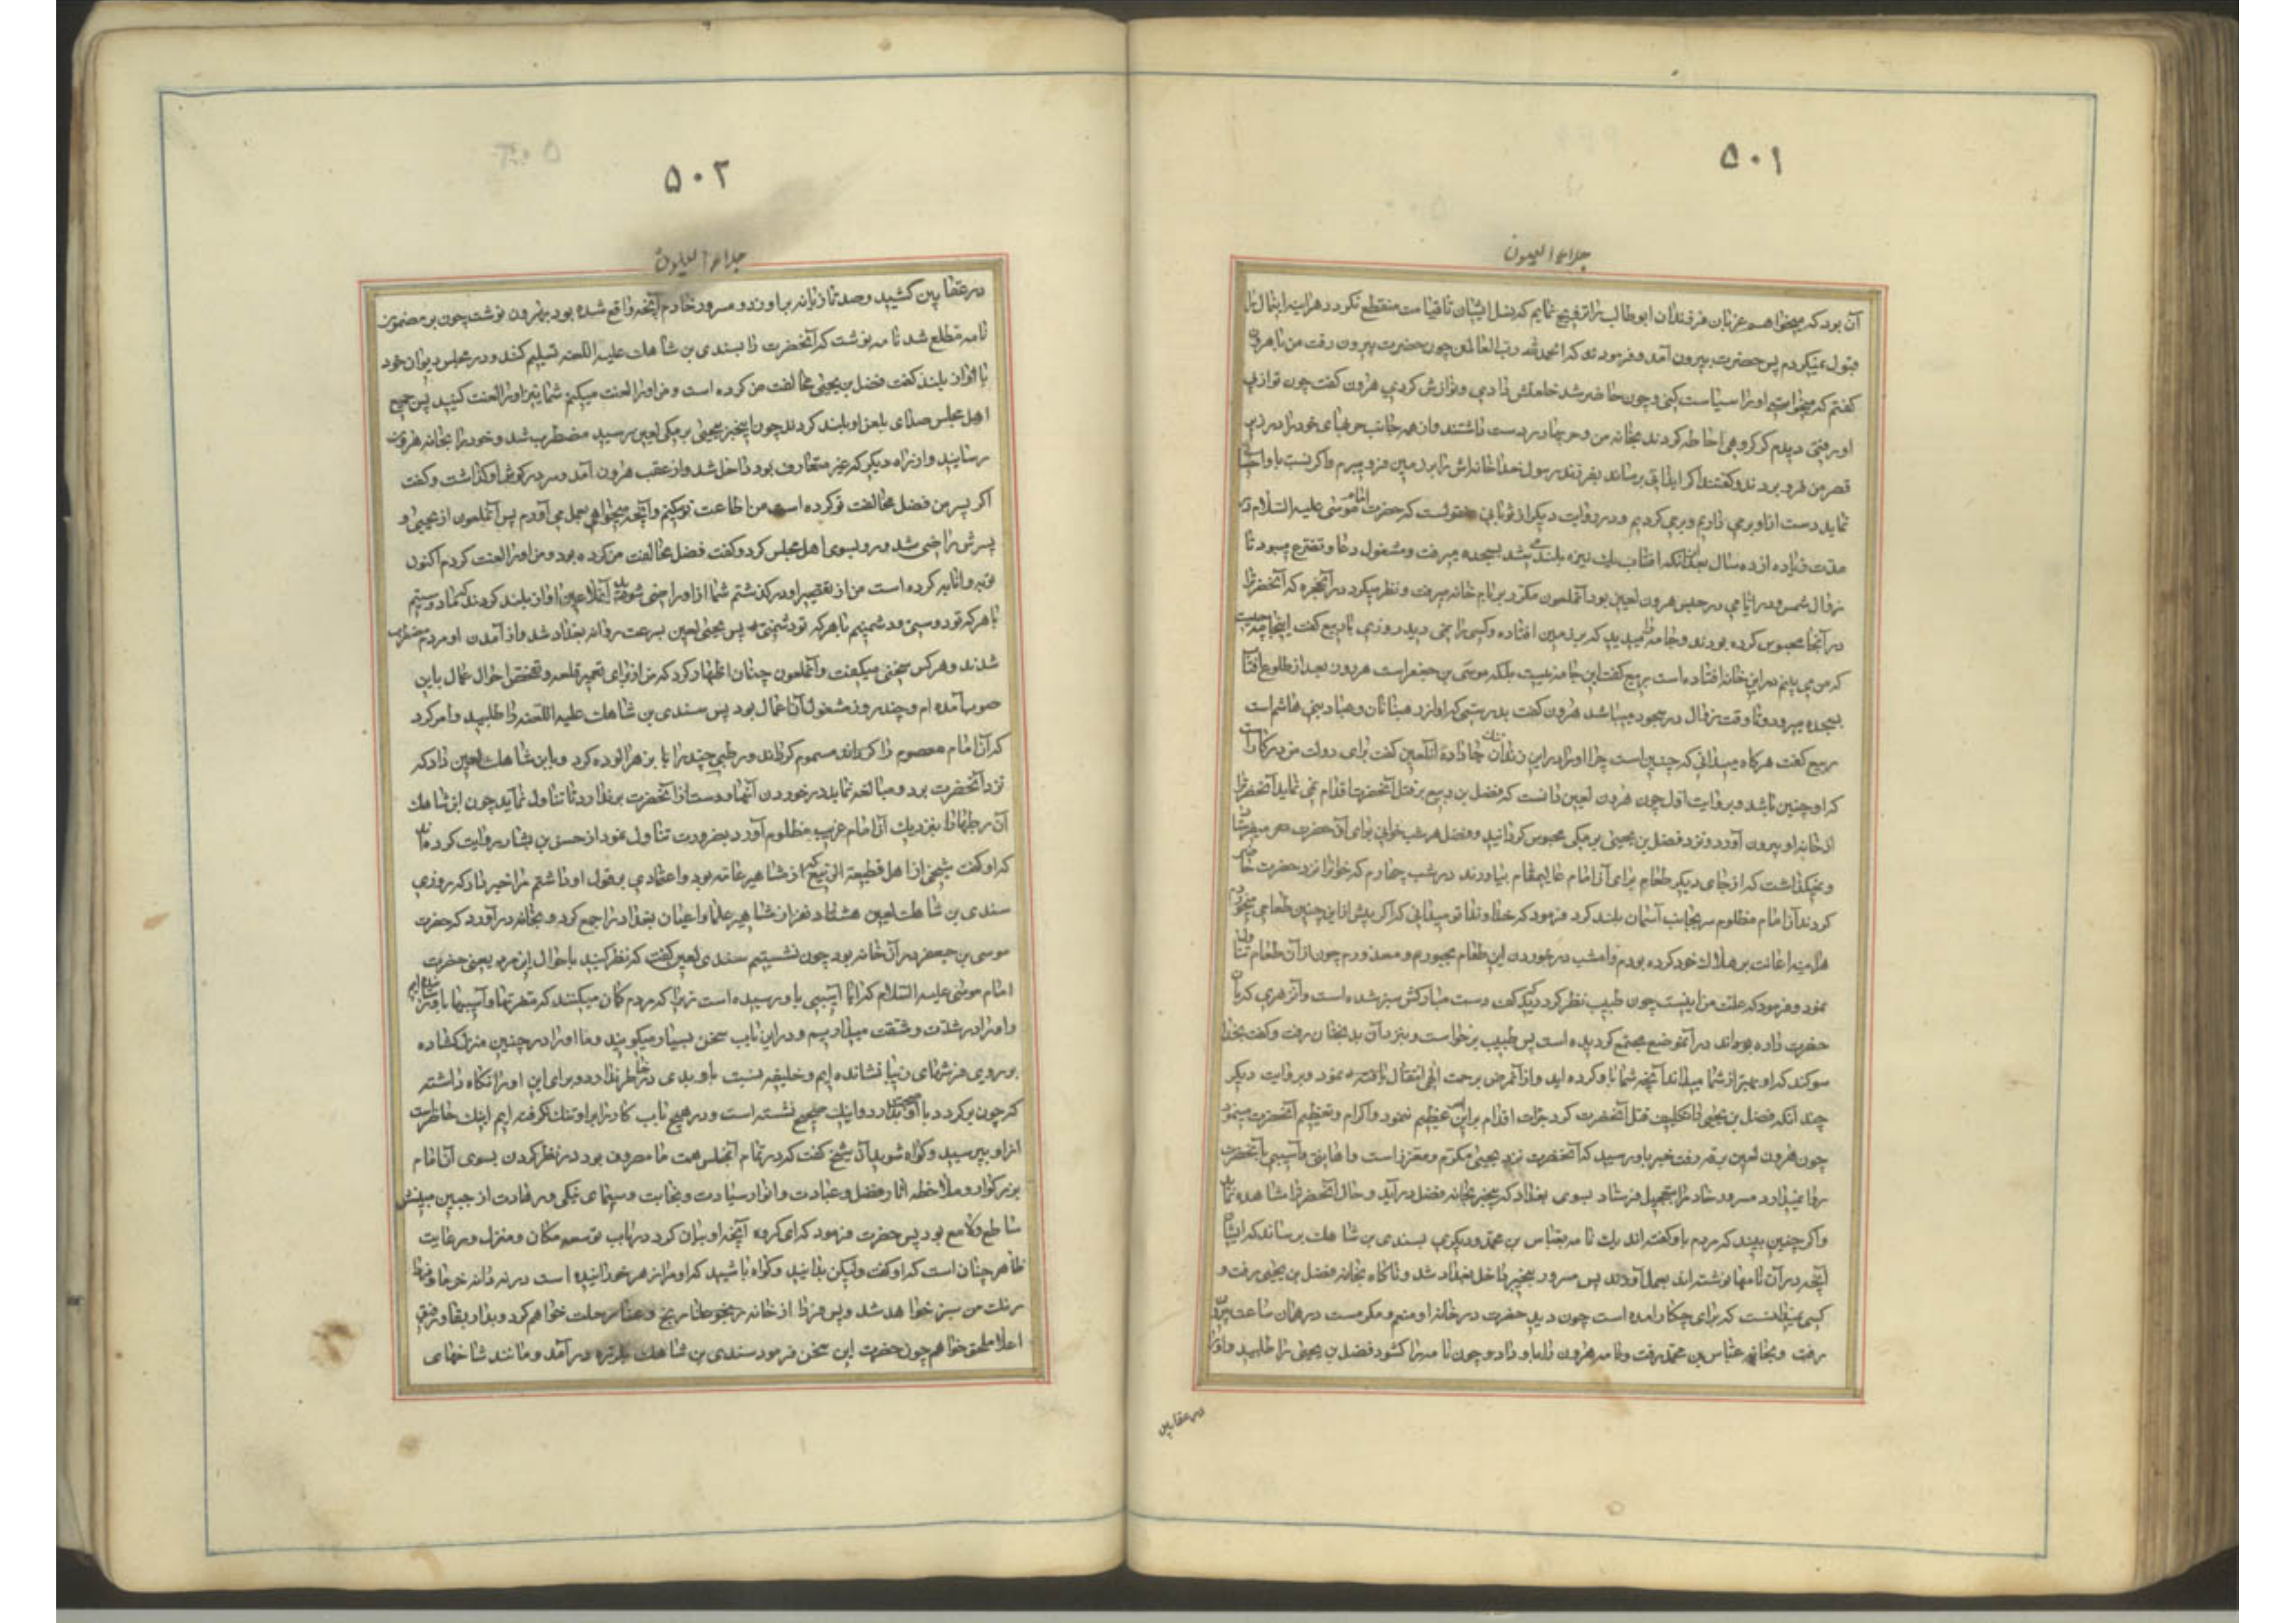 ۵۰۱
جلاء العیون
آن بود که میخواهم عزبان فرزندان ابوطالب را تزویج نمایم که نسل ایشان تا قیامت منقطع نگردد هراینه ابتمال را
قبول نمیکردم پس حضرت بیرون آمد و فرمود که الحمدلله رب العالمین چون حضرت بیرون رفت من با هرون
کفتم که میخواستی او را سیاست کنی و چون حاضر شد خلعتش دادی و نوازش کردی هرون کفت چون تو از پی
او رفتی دیدم که کروهی احاطه کردند بخانه من و حربها در دست داشتند و از همه جانب حربهای خود را در زیر
قصر من فرو بردند و کفتند اکر ایذائی برساند بفرزند رسول خدا خانه‌اش را بزمین فرو بریم و اکر نسبت باو احسان
نماید دست از او برمی داریم و برمی کردیم و در روایت دیکر از ثوبانی منقولست که حضرت امام موسی علیه السلام در
مدت زیاده از ده سال بعد از آنکه افتاب یک نیزه بلند می‌شد بسجده میرفت و مشغول دعا و تضرع میبود تا
زوال شمس و در ایامی در حبس هرون لعین بود آنملعون مکرر بر بام خانه میرفت و نظر میکرد در آنحجره که آنحضرت را
در آنجا محبوس کرده بودند و جامه میدید که بر زمین افتاده و کسی را نمی دید روزی با ربیع کفت اینجامه چیست
که من می بینم در این خانه افتاده است ربیع کفت این جامه نیست بلکه موسی بن جعفر است هر روز بعد از طلوع افتاب
بسجده میرود و تا وقت زوال در سجود میباشد هرون کفت بدرستیکه او از رهبانان و عباد بنی هاشم است
ربیع کفت هرکاه میدانی که چنین است چرا او را در این زندان تنک جا داده انلعین کفت برای دولت من در کار است
که او چنین باشد و بروایت اول چون هرون لعین دانست که فضل بن ربیع بر قتل آنحضرت اقدام نمی نماید آنحضرت را
از خانه او بیرون آورد و نزد فضل بن یحیی برمکی محبوس کردانید و فضل هر شب خوانی برای آن حضرت میفرستاد
و نمیکذاشت که از جای دیکر طعام برای آن امام عالیمقام بیاورند در شب چهارم که خوان را نزد حضرت حاضر
کردند آن امام مظلوم سر بجانب آسمان بلند کرد فرمود که خداوندا تو میدانی که اکر پیش از این چنین طعامی میخوردم
هراینه اعانت بر هلاک خود کرده بودم و امشب در خوردن این طعام مجبورم و معذورم چون از آن طعام تناول
نمود و فرمود که علت من اینست چون طبیب نظر کرد دید که کف دست مبارکش سبز شده است و آن زهری که بآن
حضرت داده بودند در آنموضع مجتمع کردیده است پس طبیب برخواست و بنزد آن بدبختان رفت و کفت بخدا
سوکند که او بهتر از شما میداند آنچه شما باو کرده اید و از آنمرض برحمت الهی انتقال یافته نمود و بروایت دیکر
چند آنکه فضل بن یحیی را تکلیف قتل آنحضرت کرد جرات اقدام بر این امر عظیم ننمود و اکرام و تعظیم آنحضرت مینمود
چون هرون لعین برقه رفت خبر باو رسید که آنحضرت نزد یحیی مکرم و معزز است و اهانتی و آسیبی بآنحضرت
روا نمیدارد مسرور خادم را بتعجیل فرستاد بسوی بغداد که بیخبر بخانه فضل درآید و حال آنحضرت را مشاهده نماید
و اکر چنین بیند که مردم باو کفته اند یک نامه بعباس بن محمد و دیکری بسندی بن شاهک برساند که ایشان
آنچه در آن نامها نوشته اند بعمل آوردند پس مسرور بیخبر داخل بغداد شد و ناکاه بخانه فضل بن یحیی رفت و
کسی نمیدانست که برای چکار آمده است چون دید حضرت در خانه او معزز و مکرمست در همان ساعت بیرون
رفت و بخانه عباس بن محمد رفت و نامه هرون را باو داد و چون نامه را کشود فضل بن یحیی را طلبید و او را
در عقابین
۵۰۲
جلاء العیون
در عقابین کشید و صد تازیانه بر او زد و مسرور خادم آنچه واقع شده بود بهرون نوشت چون بر مضمون
نامه مطلع شد نامه نوشت که آنحضرت را بسندی بن شاهک علیه اللعنه تسلیم کنند و در مجلس دیوان خود
باواز بلند کفت فضل بن یحیی مخالفت من کرده است و من او را لعنت میکنم شما نیز او را لعنت کنید پس جمیع
اهل مجلس صدای بلعن او بلند کردند چون اینخبر بیحیی برمکی لعین رسید مضطرب شد و خود را بخانه هرون
رسانید و از راه دیکر که غیر متعارف بود داخل شد و از عقب هرون آمد و سر در کوش او کذاشت و کفت
اکر پسر من فضل مخالفت تو کرده است من اطاعت تو میکنم و آنچه میخواهی بعمل می آورم پس آنملعون از یحیی و
پسرش راضی شد و رو بسوی اهل مجلس کرد و کفت فضل مخالفت من کرده بود و من او را لعنت کردم اکنون
توبه و انابه کرده است من از تقصیر او درکذشتم شما از او راضی شوید آنملاعین آواز بلند کردند که ما دوستیم
با هر که تو دوستی و دشمنیم با هر که تو دشمنی پس یحیی لعین بسرعت روانه بغداد شد و از آمدن او مردم مضطرب
شدند و هر کس سخنی میکفت و آنملعون چنان اظهار کرد که من از برای تعمیر قلعه و تفحص احوال عمال باین
صوب آمده ام و چند روز مشغول آن اعمال بود پس سندی بن شاهک علیه اللعنه را طلبید و امر کرد
که آن امام معصوم را مسموم کرداند و رطبی چند را بزهر آلوده کرد و بابن شاهک لعین داد که
نزد آنحضرت برد و مبالغه نماید در خوردن آنها و دست از آنحضرت برندارد تا تناول نماید چون ابن شاهک
آن رطبها را بنزدیک آن امام غریب مظلوم آورد بضرورت تناول نمود از حسن بن بشار روایت کرده اند
که او کفت شیخی از اهل قطیعة الربیع که از مشاهیر عامه بود و اعتمادی بر قول او داشتم مرا خبر داد که روزی
سندی بن شاهک لعین هشتاد نفر از مشاهیر علما و اعیان بغداد را جمع کرد و بخانه درآورد که حضرت
موسی بن جعفر در آن خانه بود چون نشستیم سندی لعین کفت که نظر کنید باحوال این مرد یعنی حضرت
امام موسی علیه السلام که ایا آسیبی باو رسیده است زیرا که مردم کمان میکنند که متعرضها و آسیبها باو رسانیده ایم
و او را در شدت و مشقت میداریم و در این باب سخن بسیار میکویند و ما او را در چنین منزل کشاده
بر روی فرشهای زیبا نشانده ایم و خلیفه نسبت باو بدی در خاطر ندارد و برای این او را نکاه داشته
که چون برکردد با او صحبت بدارد و اینک صحیح نشسته است و در هیچ باب کار را بر او تنک نکرفته ایم اینک حاضر است
از او بپرسید و کواه شوید آن شیخ کفت که در تمام آنمجلس همت ما مصروف بود در نظر کردن بسوی آن امام
بزرکوار و ملاحظه آثار فضل و عبادت و انوار سیادت و نجابت و سیمای نیکی و زهادت از جبین مبینش
ساطع و لامع بود پس حضرت فرمود که ای کروه آنچه او بیان کرد در باب توسعه مکان و منزل و رعایت
ظاهر چنان است که او کفت ولیکن بدانید و کواه باشید که او مرا زهر خورانیده است در نه دانه خرما و فردا
رنک من سبز خواهد شد و پس فردا از خانه رنج و عنا رحلت خواهم کرد و بدار بقا و رفیق
اعلا ملحق خواهم چون حضرت این سخن فرمود سندی بن شاهک بلرزه درآمد و مانند شاخهای